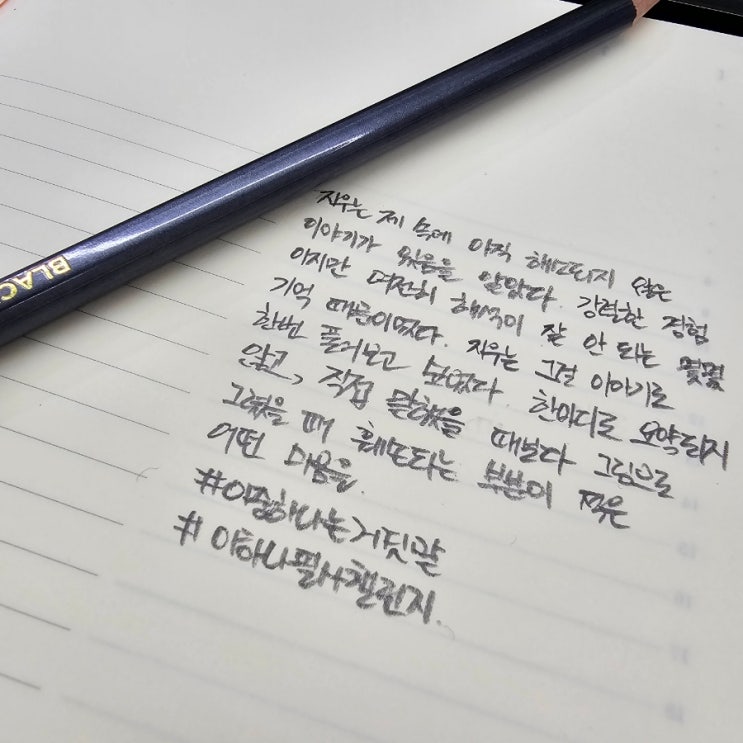 BLAC
지우는 제 속에 아직 해소되지 않은
이야기가 있음을 알았다. 강렬한 경험
이지만 여전히 해석이 잘 안 되는 몇몇
기억 때문이었다. 지우는 그걸 이야기로
한번 풀어보고 싶었다. 한마디로 요약되지
않고, 직접 말했을 때보다 그림으로
그렸을 때 훼손되는 부분이 적은
어떤 마음을.
#이중하나는거짓말
#이하나필사챌린지.